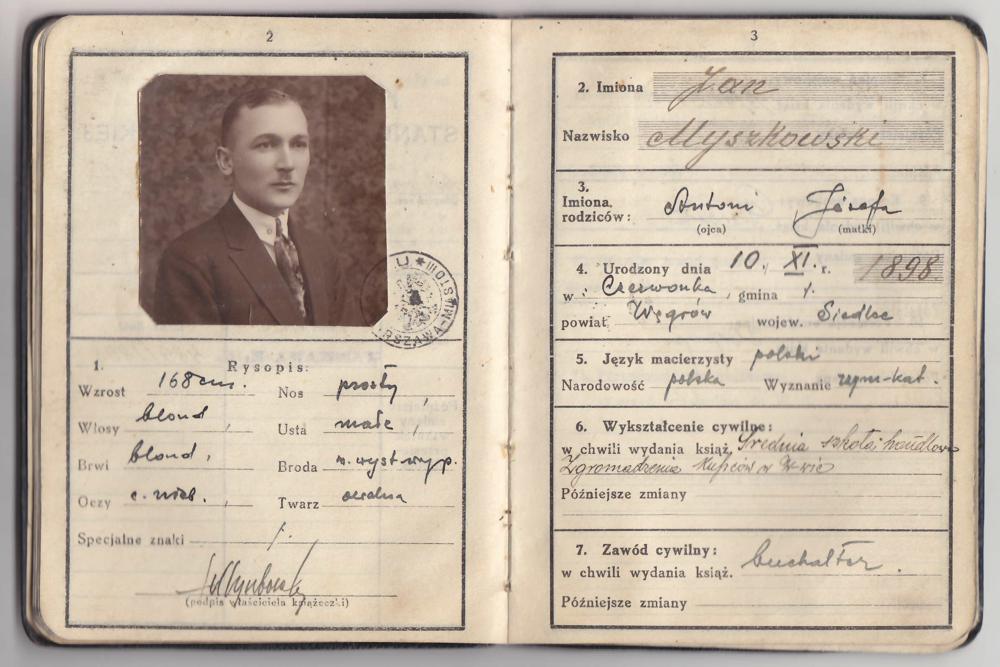 2
U * MIASTO
WARSZAWA-M
1. Rysopis:
Wzrost 168 cm. Nos prosty
Włosy blond, Usta małe,
Brwi blond, Broda n. wyst. wyp.
Oczy c. nieb., Twarz owalna
Specjalne znaki /.
(podpis właściciela książeczki)
3
2. Imiona Jan
Nazwisko Myszkowski
3.
Imiona rodziców: Antoni Józefa
(ojca) (matki)
4. Urodzony dnia 10. XI. r. 1898
w Czerwonka, gmina /.
powiat Węgrów wojew. Siedlce
5. Język macierzysty polski
Narodowość polska Wyznanie rzym-kat.
6. Wykształcenie cywilne:
w chwili wydania książ. Średnia szkoła handlowa
Zgromadzenia Kupców w W-wie
Późniejsze zmiany
7. Zawód cywilny:
w chwili wydania książ. buchalter.
Późniejsze zmiany